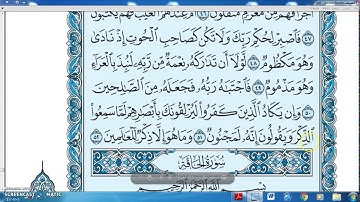 أَجْرًا فَهُم مِّن مَّغْرَمٍ مُّثْقَلُونَ ٤٦ أَمْ عِندَهُمُ الْغَيْبُ فَهُمْ يَكْتُبُونَ
٤٧ فَاصْبِرْ لِحُكْمِ رَبِّكَ وَلَا تَكُن كَصَاحِبِ الْحُوتِ إِذْ نَادَىٰ
وَهُوَ مَكْظُومٌ ٤٨ لَّوْلَا أَن تَدَارَكَهُ نِعْمَةٌ مِّن رَّبِّهِ لَنُبِذَ بِالْعَرَاءِ
وَهُوَ مَذْمُومٌ ٤٩ فَاجْتَبَاهُ رَبُّهُ فَجَعَلَهُ مِنَ الصَّالِحِينَ
٥٠ وَإِن يَكَادُ الَّذِينَ كَفَرُوا لَيُزْلِقُونَكَ بِأَبْصَارِهِمْ لَمَّا سَمِعُوا
الذِّكْرَ وَيَقُولُونَ إِنَّهُ لَمَجْنُونٌ ٥١ وَمَا هُوَ إِلَّا ذِكْرٌ لِّلْعَالَمِينَ ٥٢
سُورَةُ الْحَاقَّةِ
بِسْمِ اللَّهِ الرَّحْمَٰنِ الرَّحِيمِ
SCREENCAST-O-MATIC